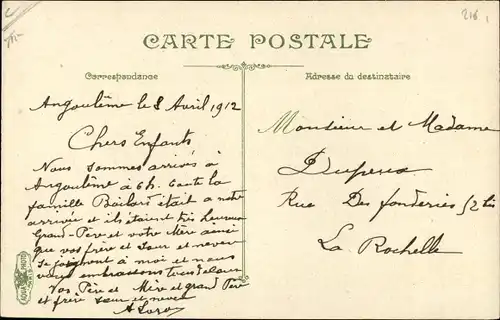 216
CARTE POSTALE
Correspondance
Adresse du destinataire
Angoulême le 8 Avril 1912
Chers Enfants
Nous sommes arrivés à
Angoulême à 6h. toute la
famille était a notre
arrivée et ils étaient très heureux
Grand-Père et votre Mère ainsi
que vos frère et sœur et neveu
se joignent à moi et nous
vous embrassons tous
Vos Père et Mère et grand Père
et frère sœur et neveu
Monsieur et Madame
Dupeux
Rue Des fonderies 52 bis
La Rochelle